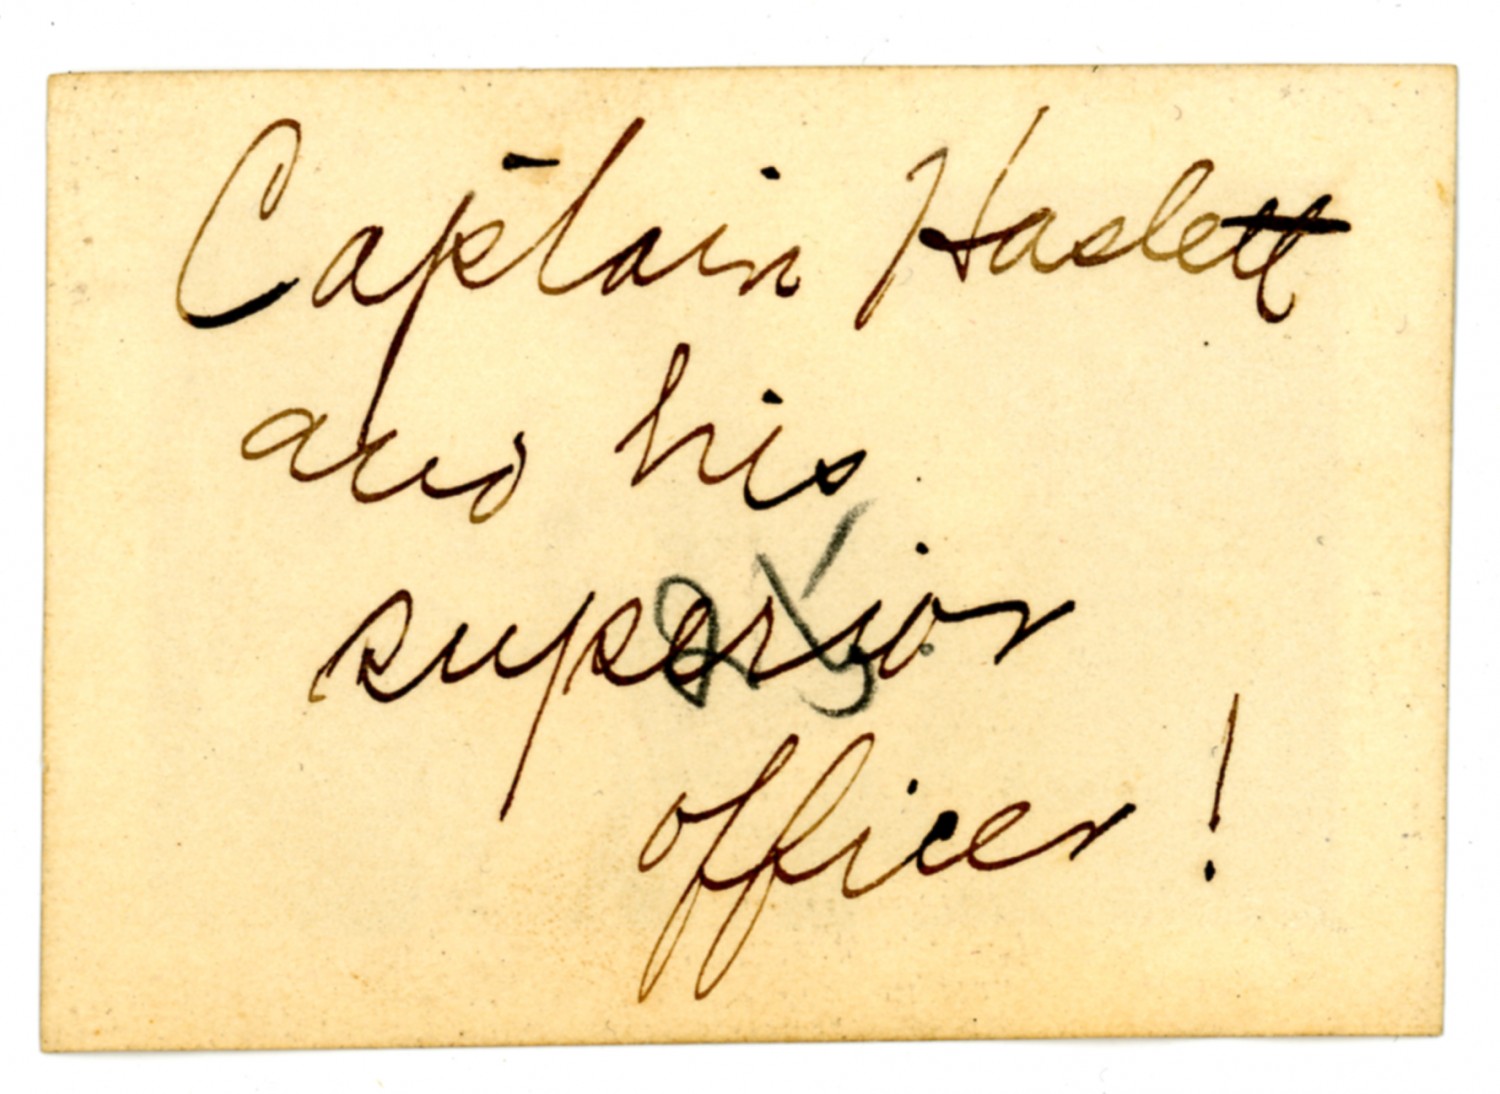 Captain Haslett
and his
superior
officer!